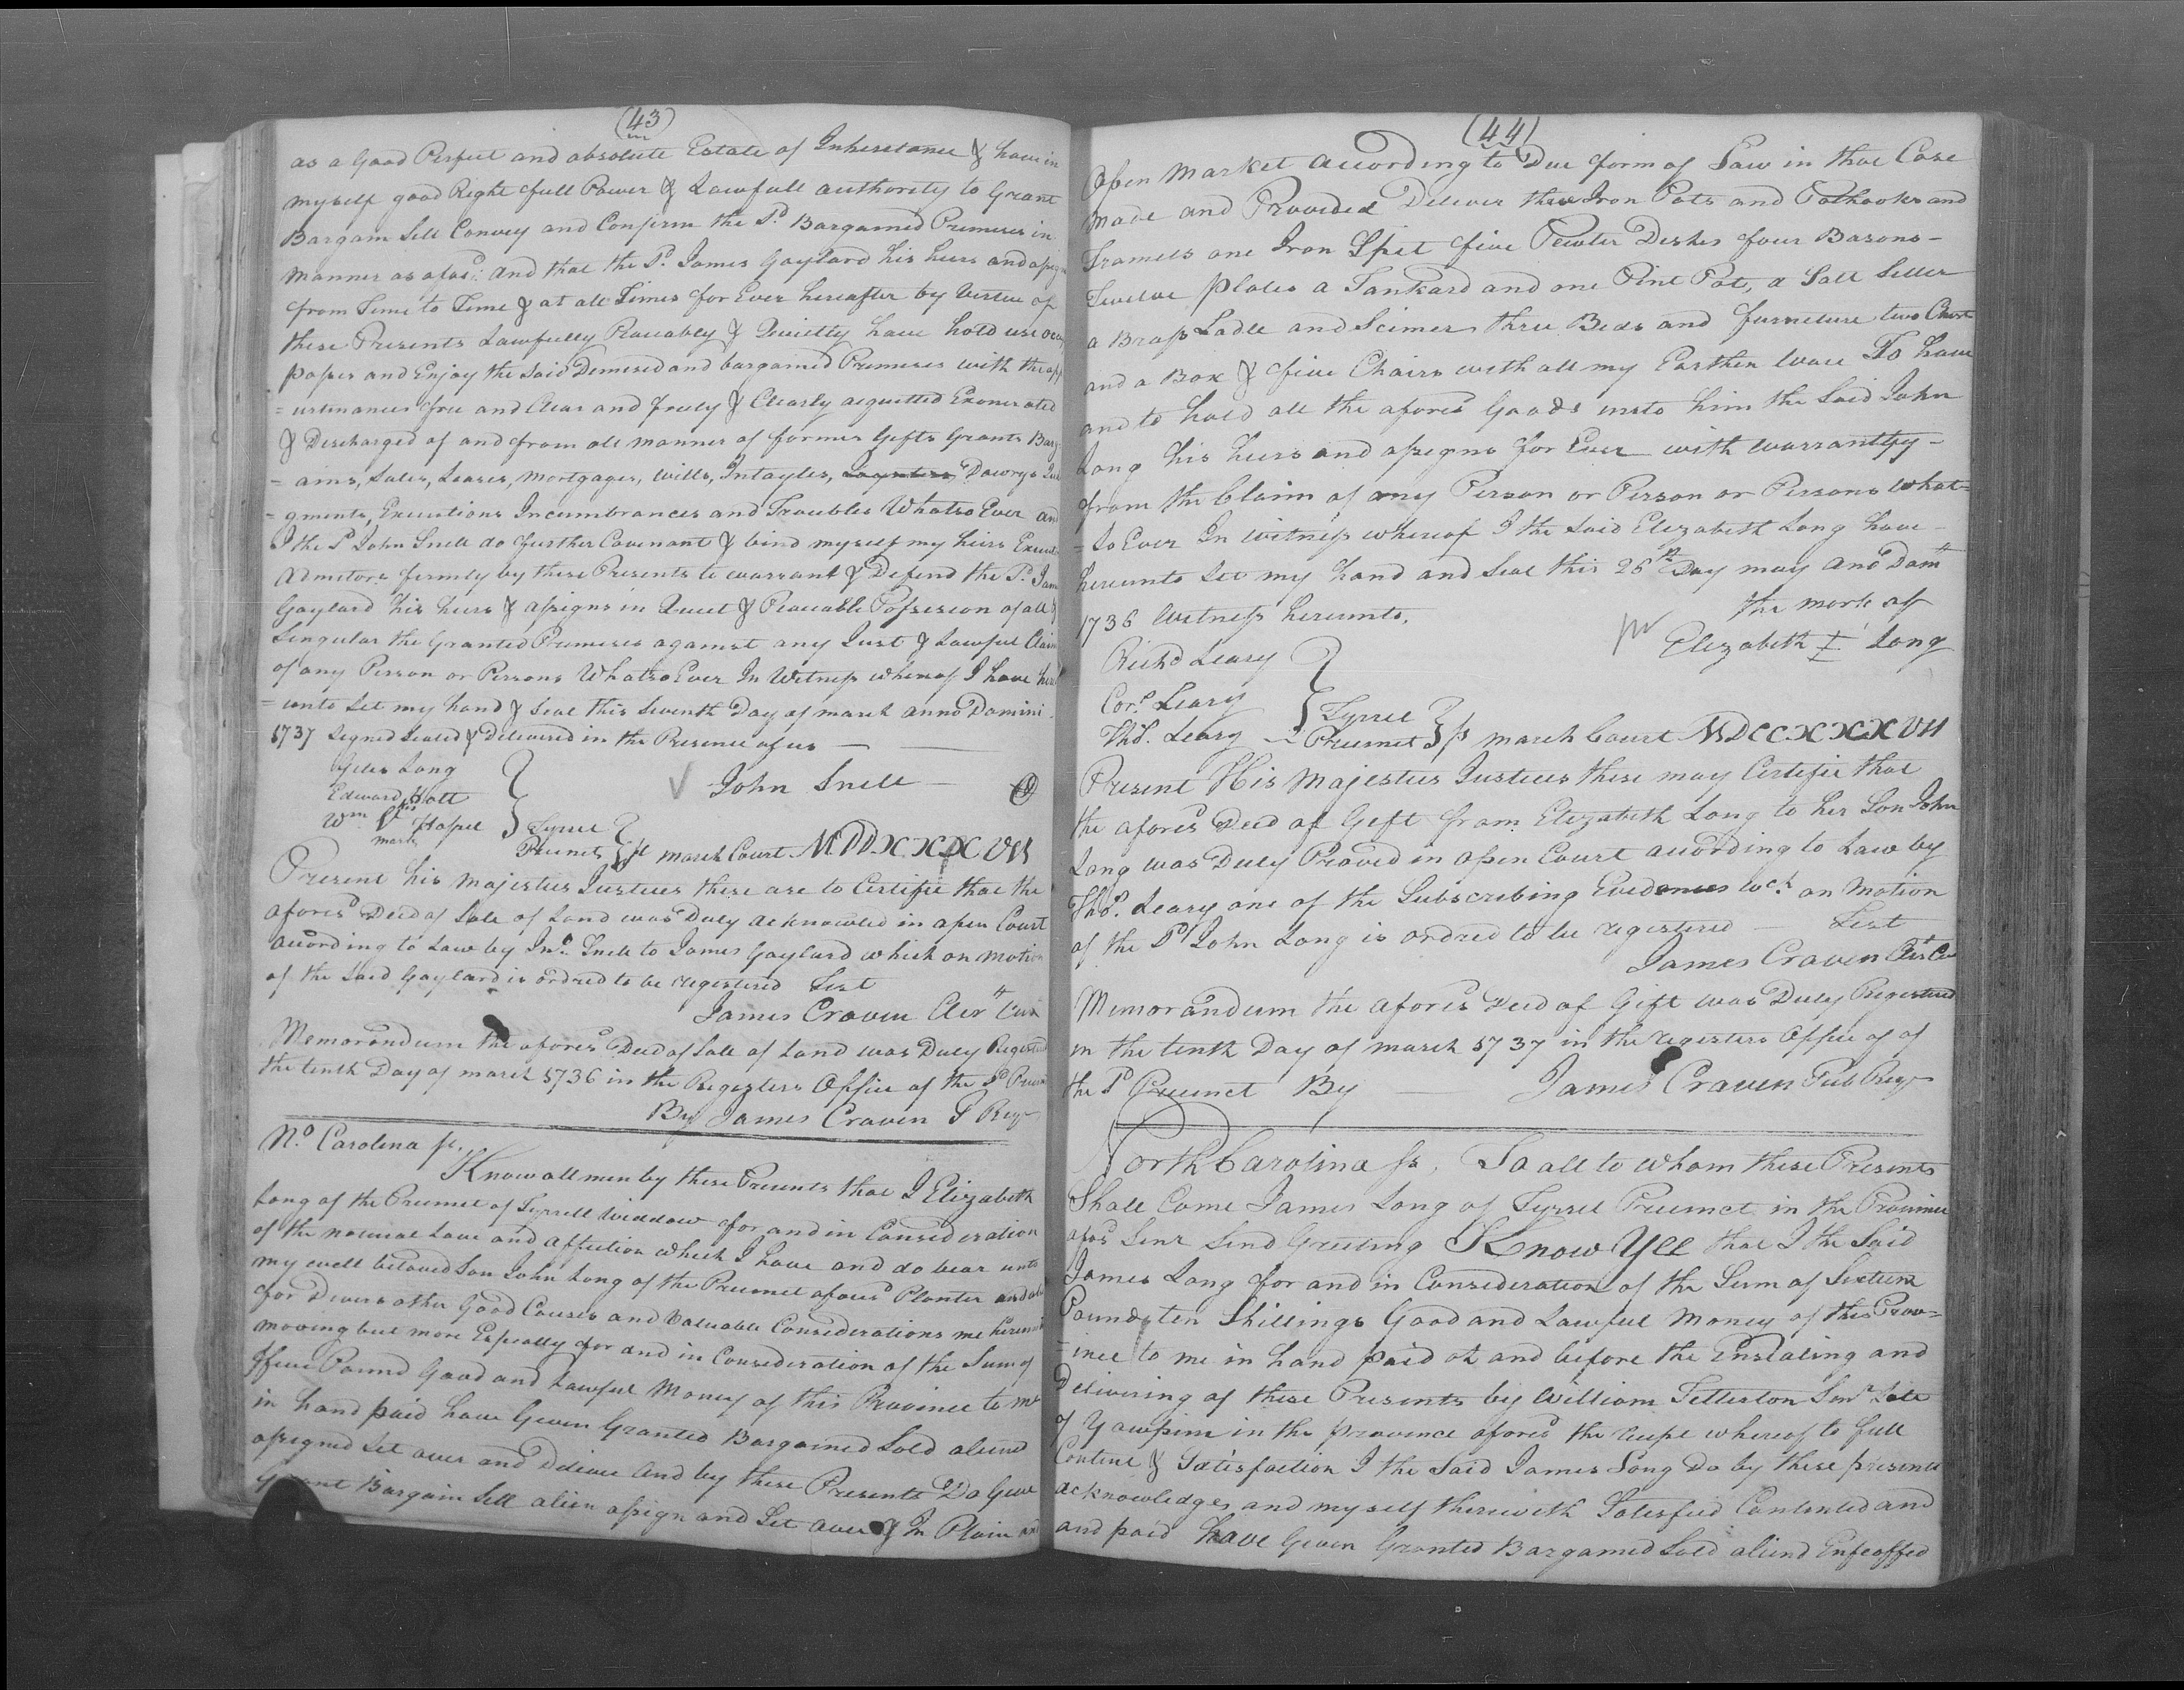 (43)
as a Good Perfect and absolute Estate of Inheritance & have in
myself good Right full Power & Lawfull authority to Grant
Bargain Sell Convey and Confirm the Sd. Bargained Premises in
manner as afosd: and that the Sd. James Gaylard his heirs and assigns
from Time to Time & at all Times for Ever hereafter by Vertue of
these Presents Lawfully Peaceably & Quietly have hold use occupy
posses and Enjoy the Said Demised and bargained Premises with the app
= urtinances free and Clear and freely & Clearly acquitted Exonerated
& Discharged of and from all manner of former Gifts Grants Barg
= ains, Sales, Leases, Mortgages, Wills, Intayles, Dowrys Jud
= gments, Executions Incumbrances and Troubles Whatso Ever and
I the Sd John Snell do further Covenant & bind myself my heirs Execut
Admitors firmly by these Presents to warrant & Defend the Sd. Jam
Gaylard his heirs & assigns in Quiet & Peaceable Possesion of all &
Singular the Granted Premises against any Just & Lawful Claim
of any Person or Persons Whatso Ever In Witness whereof I have here
= unto Set my hand & Seal this Seventh Day of march anno Domini
1737 Signed Sealed & Delivered in the Presence of us
Giles Long
Edward Hott
Wm his Hopel
mark
John Snell
Tyrrel
Precinct } ss march Court MDDXXXVII
Present his Majesties Justices these are to Certifie that the
afores'd Deed of Sale of Land was Duly acknowled in open Court
according to Law by Jno. Snell to James Gaylard which on motion
of the Said Gaylard is ordred to be registered Test
James Craven Cler Cur
Memorandum the afores'd Deed of Sale of Land was Duly Registred
the tenth Day of march 1736 in the Registers Office of the Sd Precinct
By James Craven P Regr
No. Carolina ss.
Know all men by these Presents that I Elizabeth
Long of the Precinct of Tyrrell Widdow for and in Consideration
of the natural Love and affection which I have and do bear unto
my well beloved Son John Long of the Precinct aforesd Planter and also
for Divers other Good Causes and Valuable Considerations me hereunto
moving but more Espeally for and in Consideration of the Sum of
five Pound Good and Lawful Money of this Province to me
in hand paid have Given Granted Bargained Sold aliend
assigned Set over and Deliver and by these Presents Do Give
Grant Bargain Sell alien assign and Set over & In Plain and
(44)
Open Market according to Due form of Law in that Case
made and Provided Deliver three Iron Pots and Pothooks and
Tramels one Iron Spit five Pewter Dishes four Basons -
Twelve plates a Tankard and one Pint Pot, a Salt Seller
a Brass Ladle and Scimer three Beds and furneture two Chest
and a Box & five Chairs with all my Earthen Ware To have
and to hold all the afores'd Goods unto him the Said John
Long his heirs and assigns for Ever with warrantty -
from the Claim of any Person or Person or Persons what=
= So Ever In Witness whereof I the Said Elizabeth Long have -
hereunto Set my hand and Seal this 26th Day may ano Dom
1736 Witness hereunto.
the mark of
Elizabeth I Long
Richd Leary
Cor. Leary
Tho. Leary
Tyrrel
Precinct } ss march Court MDCCXXXVII
Present His Majesties Justices these may Certifie that
the afores'd Deed of Gift from Elizabeth Long to her Son John
Long was Duly Proved in open Court according to Law by
Tho. Leary one of the Subscribing Evidences wch on Motion
of the Sd John Long is ordred to be registered - Test
James Craven Cler Cur
Memorandum the afores'd Deed of Gift was Duly Registred
in the tenth Day of march 1737 in the registers Office of of
the Sd Precinct By James Craven Pub Regr
North Carolina ss. To all to whom these Presents
Shall Come James Long of Tyrrel Precinct in the Province
afosd Senr Send Greeting Know Yee that I the Said
James Long for and in Consideration of the Sum of Sixteen
Pounds ten Shillings Good and Lawful Money of this Prov=
= ince to me in hand paid at and before the Ensealing and
Delivering of these Presents by William Tetterton Senr Late
of Yawpim in the provence afores'd the receipt whereof to full
Content & Satisfaction I the Said James Long Do by these presents
acknowledge, and myself therewith Satesfied Contented and
and paid have Given Granted Bargained Sold aliend Enfeoffed